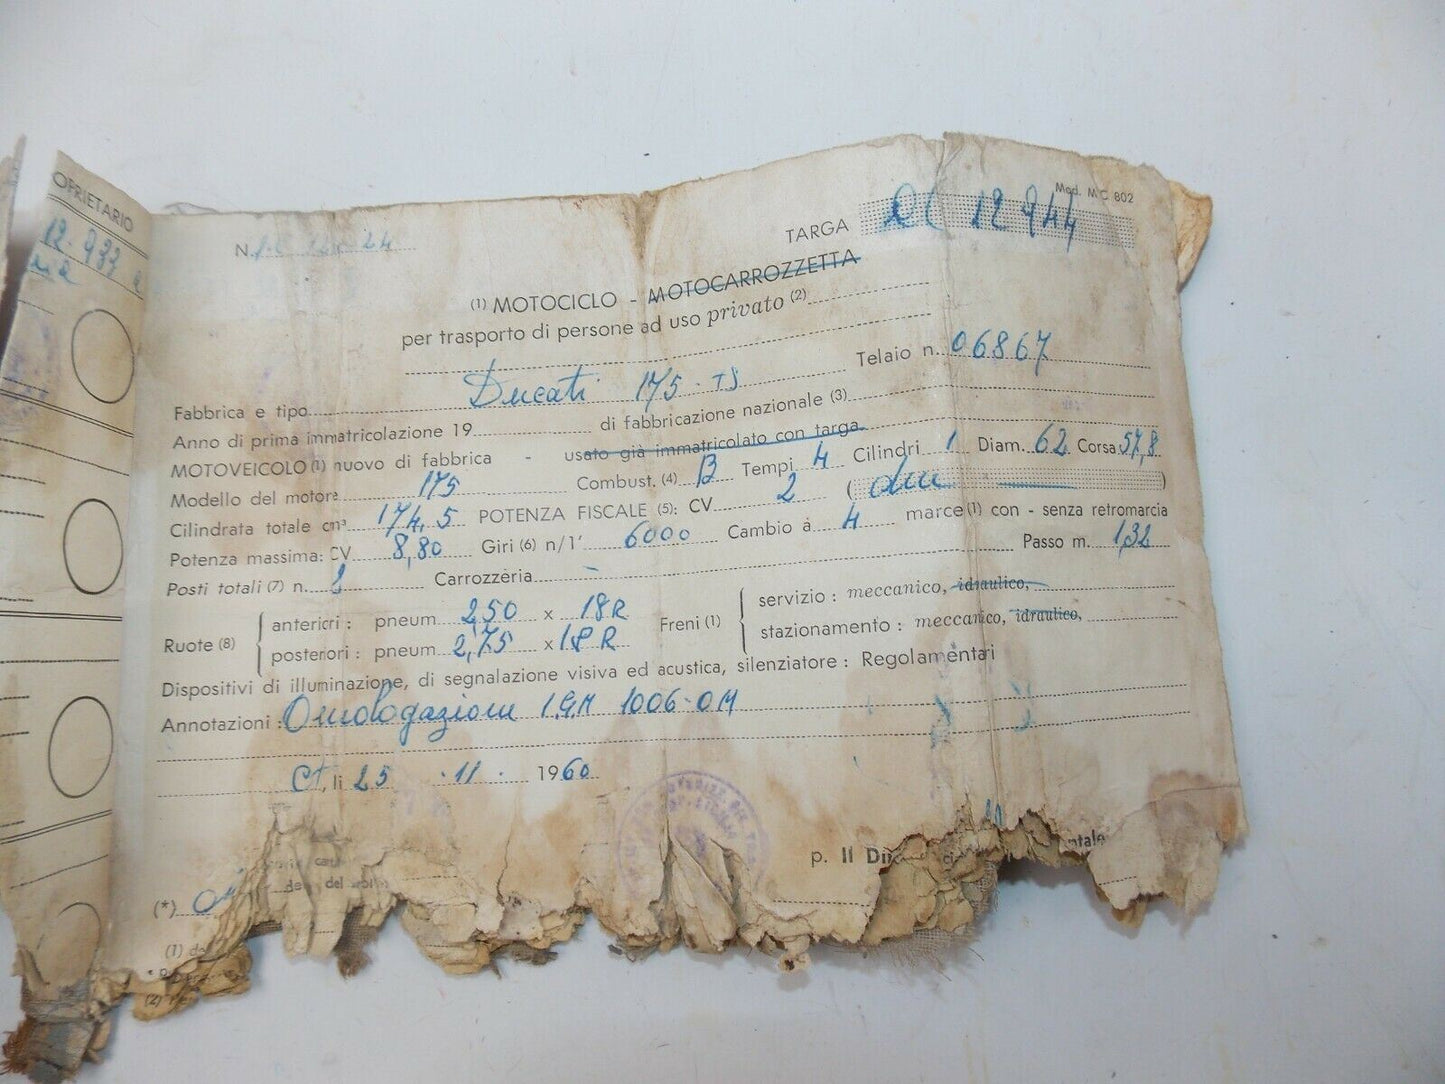 OPRIETARIO
12.937
Mod. MC 802
N.
TARGA 12944
(1) MOTOCICLO - MOTOCARROZZETTA
per trasporto di persone ad uso privato (2)
Telaio n. 06867
Fabbrica e tipo Ducati 175 TS
Anno di prima immatricolazione 19 di fabbricazione nazionale (3)
MOTOVEICOLO (1) nuovo di fabbrica - usato già immatricolato con targa
Modello del motore 175 Combust. (4) B Tempi 4 Cilindri 1 Diam. 62 Corsa 57,8
Cilindrata totale cm³ 174,5 POTENZA FISCALE (5): CV 2 (due)
Potenza massima: CV 8,80 Giri (6) n/1' 6000 Cambio a 4 marce (1) con - senza retromarcia
Posti totali (7) n. 2 Carrozzeria - Passo m. 1,32
Ruote (8) anteriori: pneum 2,50 x 18R Freni (1) servizio: meccanico, idraulico,
posteriori: pneum 2,75 x 18R stazionamento: meccanico, idraulico,
Dispositivi di illuminazione, di segnalazione visiva ed acustica, silenziatore: Regolamentari
Annotazioni: Omologazione I.G.M 1006.OM
Ct, li 25 . 11 . 1960
p. Il
(*)
(1)
(2)